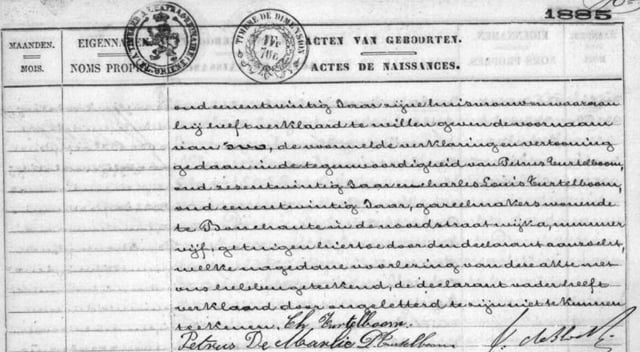 1885
MAANDEN.
MOIS.
EIGENNA
NOMS PROP
ACTEN VAN GEBOORTEN.
ACTES DE NAISSANCES.
TIMBRE DE DIMENSION
oud eenentwintig Jaar zijne huisvrouw en waaraan
hij heeft verklaard te willen geven de voornaam
van de voormelde verklaring en vertooning
gedaan in de tegenwoordigheid van Petrus Turtelboom,
oud zesentwintig Jaar en Charles Louis Turtelboom,
oud eenentwintig Jaar, gareelmakers wonende
te Bouchaute in de noordstraat wijk a, nummer
vijf, getuigen hiertoe door den declarant aanzocht,
welke na gedane voorlezing van deze akte met
ons hebben geteekend, de declarant vader heeft
verklaard door ongeletterd te zijn niet te kunnen
teekenen. Ch Turtelboom.
Petrus De P Turtelboom